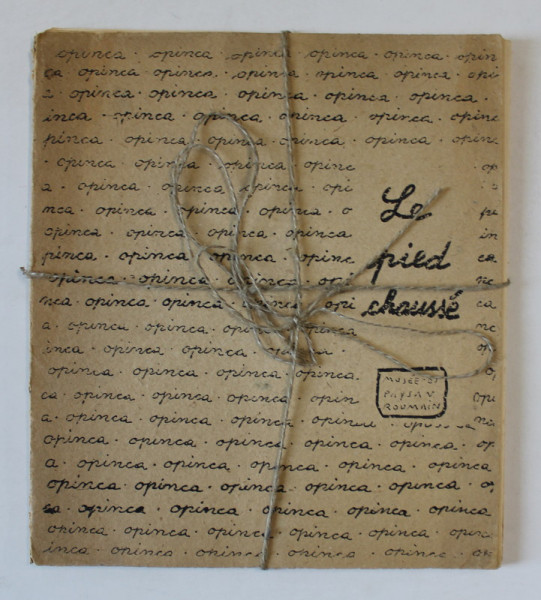 opinca · opinca · opinca · opinca · opinca · opin
ca · opinca · opinca · opinca · opinca · opinca · opi
a · opinca · opinca · opinca · opinca · opinca ·
inca · opinca · opinca · opinca · opinca · opinc
pinca · opinca · opinca · opinca · opinca · opinca
· opinca · opinca · opinca · opinc
a · opinca · opinca · opinca · opi
nca · opinca · opinca · opinca · o
Le
pinca · opinca · opinca · opinca
pinca · opinca · opinca · opinc
pied
opinca · opinca · opinca · opi
nca · opinca · opinca · opinca · opi
chaussé
a · opinca · opinca · opinca · opinca
inca · opinca · opinca · opinca
opinca · opinca · opinca · opinca
MUSÉE DU
PAYSAN
ROUMAIN
ca · opinca · opinca · opinca · opin
a · opinca · opinca · opinca · opinca
opinca · opinca · opinca · opinca · opinca · op
a · opinca · opinca · opinca · opinca · opinca
opinca · opinca · opinca · opinca · opinca ·
ca · opinca · opinca · opinca · opinca · opinca
opinca · opinca · opinca · opinca · opinca · opinc
inca · opinca · opinca · opinca · opinca · op